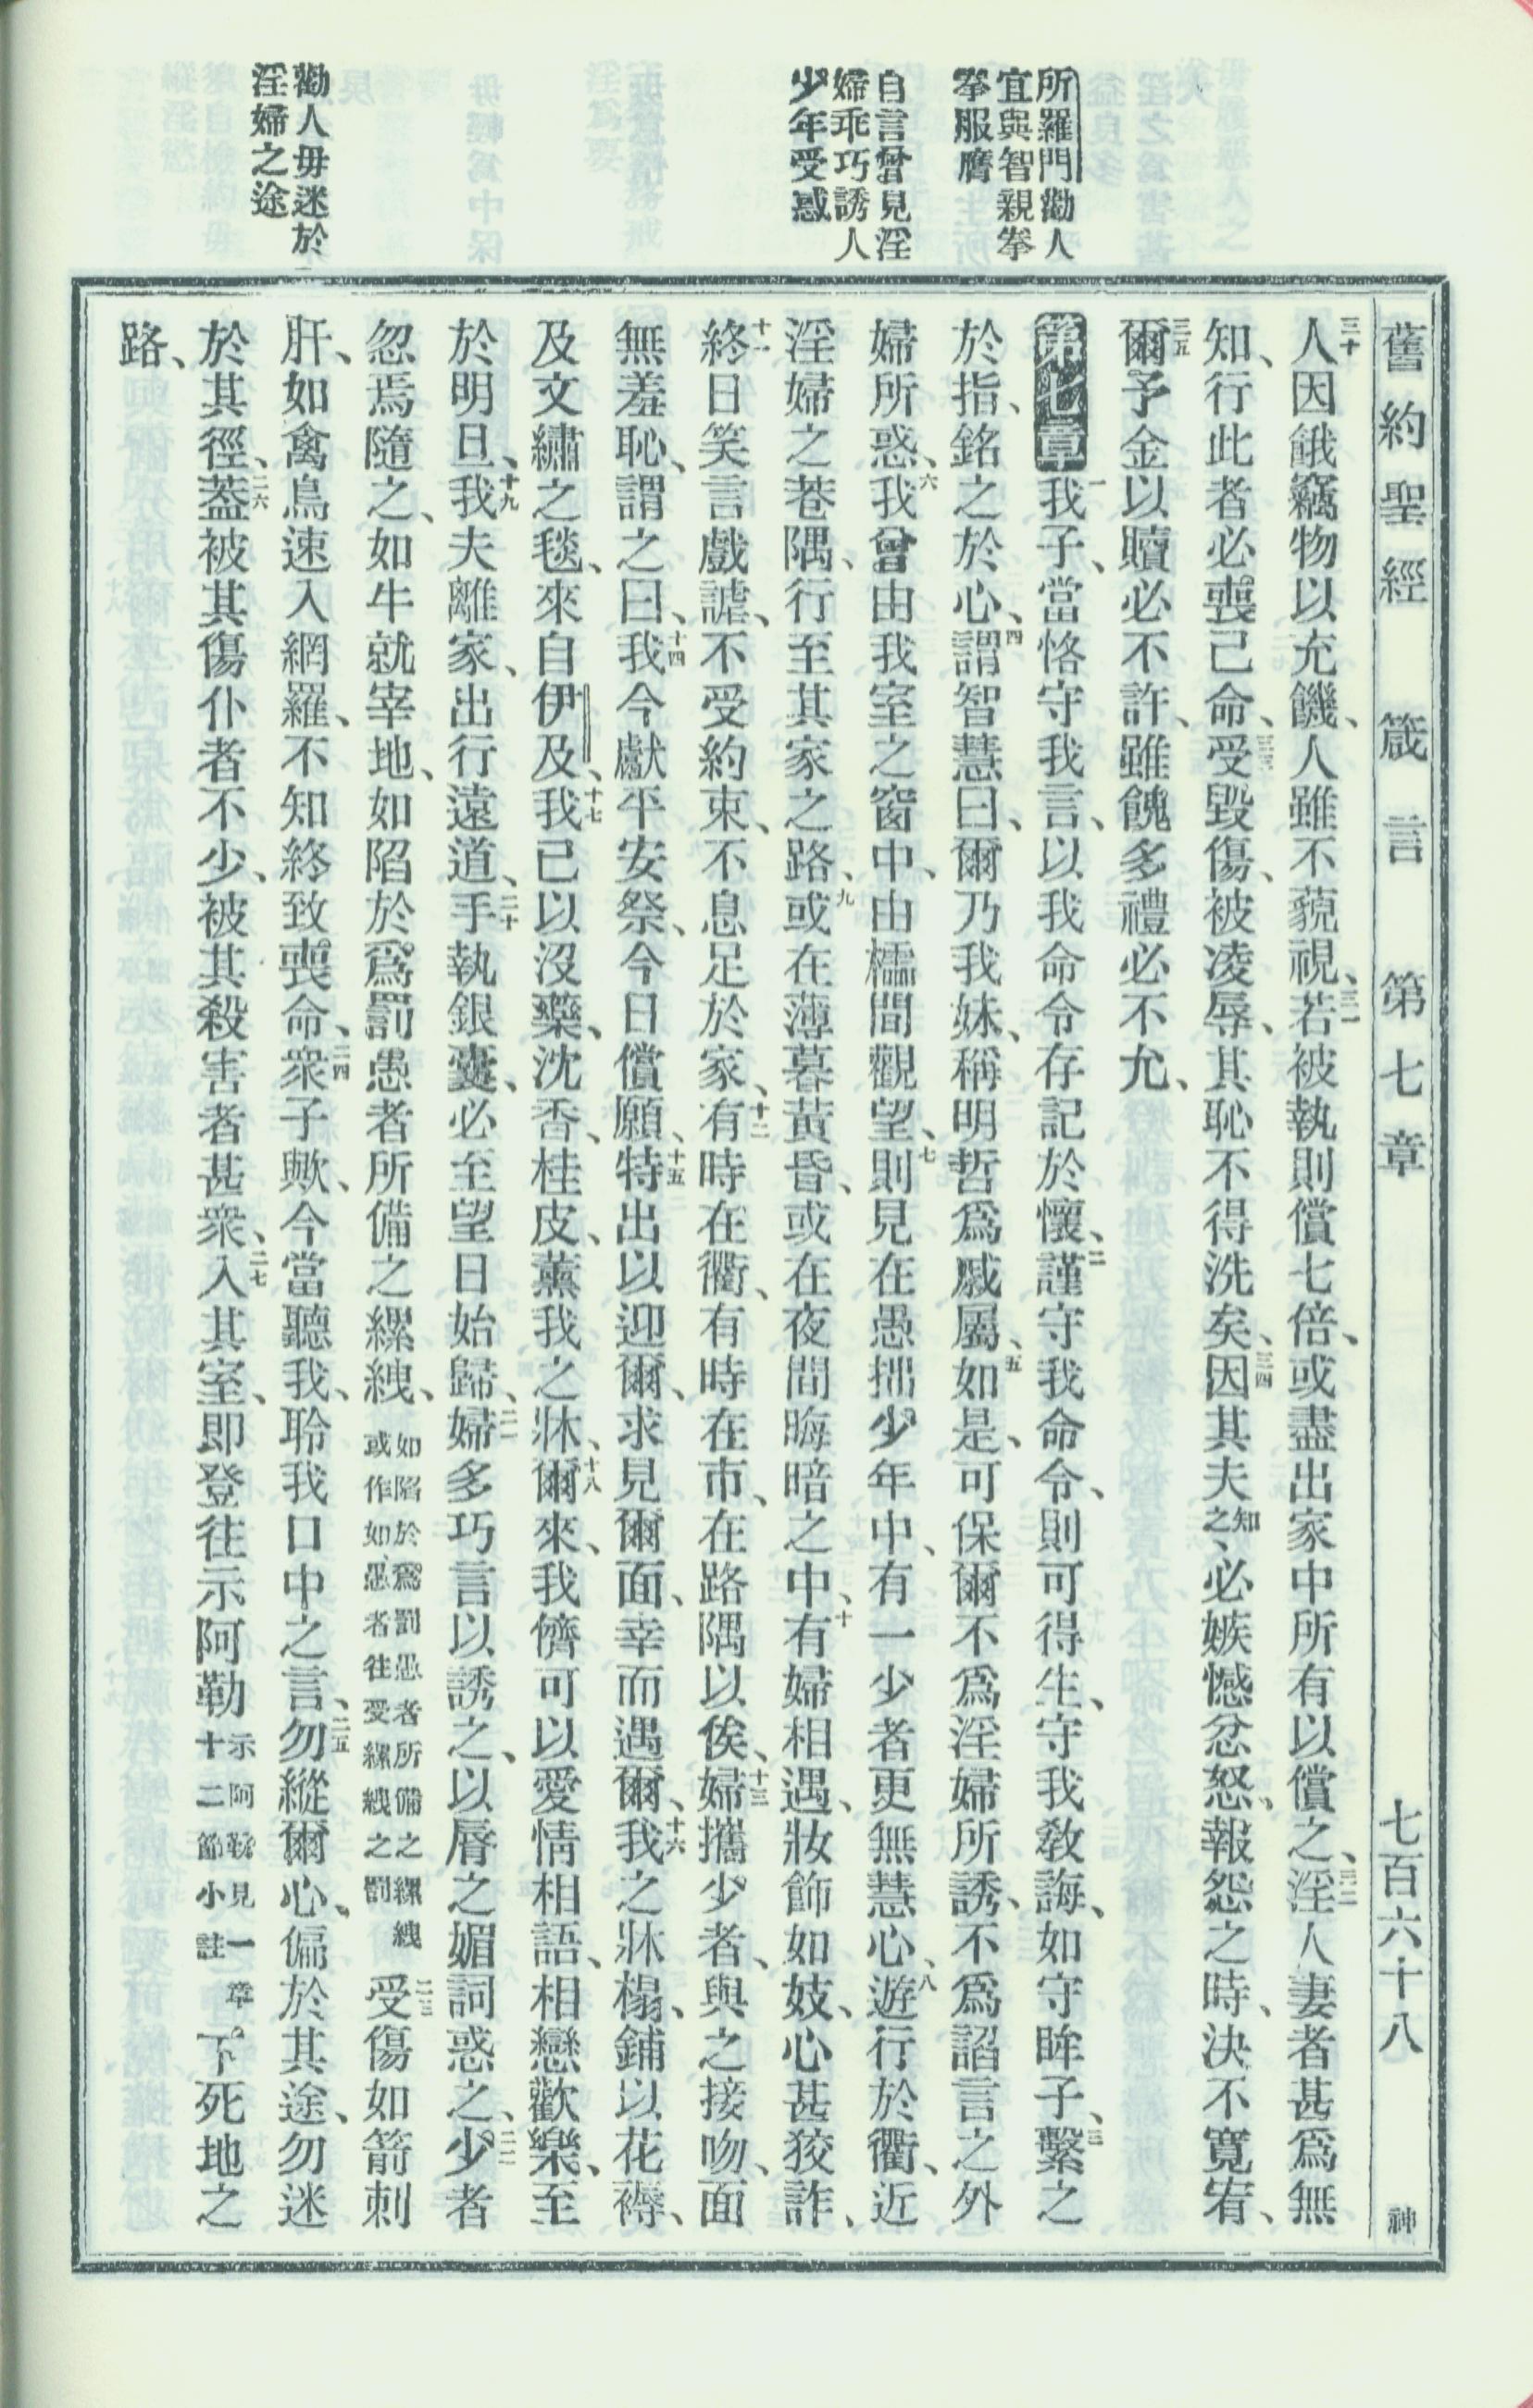 所羅門勸人
宜與智親拳
拳服膺
自言曾見淫
婦乖巧誘人
少年受惑
勸人毋迷於
淫婦之途
舊約聖經 箴言 第七章 七百六十八 神
三十人因餓竊物以充饑、人雖不藐視、三一若被執則償七倍、或盡出家中所有以償之、三二淫人妻者甚爲無
知、行此者必喪己命、三三受毀傷、被凌辱、其恥不得洗矣、三四因其夫知之、必嫉憾忿怒、報怨之時、決不寬宥、
三五爾予金以贖必不許、雖餽多禮必不允、
第七章 一我子、當恪守我言、以我命令存記於懷、二謹守我命令、則可得生、守我教誨、如守眸子、三繫之
於指、銘之於心、四謂智慧曰、爾乃我妹、稱明哲爲戚屬、五如是、可保爾不爲淫婦所誘、不爲諂言之外
婦所惑、六我曾由我室之窗中、由櫺間觀望、七則見在愚拙少年中、有一少者更無慧心、八遊行於衢、近
淫婦之巷隅、行至其家之路、九或在薄暮黃昏、或在夜間晦暗之中、十有婦相遇、妝飾如妓、心甚狡詐、
十一終日笑言戲謔、不受約束、不息足於家、十二有時在衢、有時在市、在路隅以俟、十三婦攜少者、與之接吻、面
無羞恥、謂之曰、十四我今獻平安祭、今日償願、十五特出以迎爾、求見爾面、幸而遇爾、十六我之牀榻、鋪以花褥、
及文繡之毯、來自伊及、十七我已以沒藥、沈香、桂皮、薰我之牀、十八爾來、我儕可以愛情相語、相戀歡樂、至
於明旦、十九我夫離家、出行遠道、二十手執銀囊、必至望日始歸、二一婦多巧言以誘之、以脣之媚詞惑之、二二少者
忽焉隨之、如牛就宰地、如陷於爲罰愚者所備之縲絏、如陷於爲罰愚者所備之縲絏或作如愚者往受縲絏之罰二三受傷如箭刺
肝、如禽鳥速入網羅、不知終致喪命、二四衆子歟、今當聽我、聆我口中之言、二五勿縱爾心、偏於其途、勿迷
於其徑、二六蓋被其傷仆者不少、被其殺害者甚衆、二七入其室、即登往示阿勒示阿勒見一章十二節小註下死地之
路、